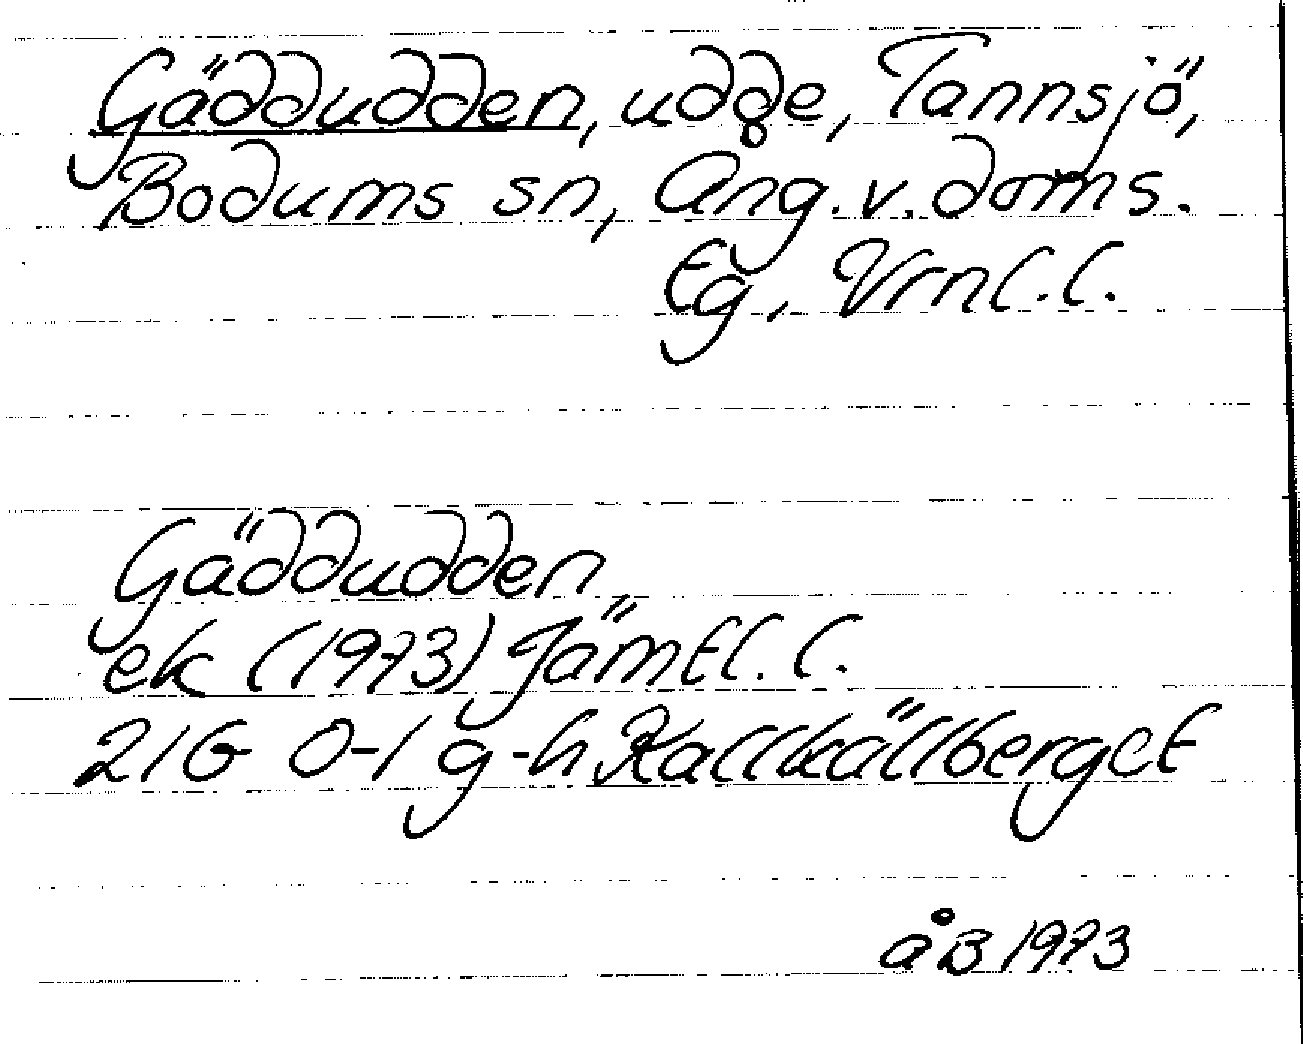 Gäddudden, udde, Tannsjö,
Bodums sn, Ång. v. doms.
Eg., Vrnl. l.
Gäddudden,
ek (1973) Jämtl. l.
21G 0-1 g-h Kallkällberget
åB 1973